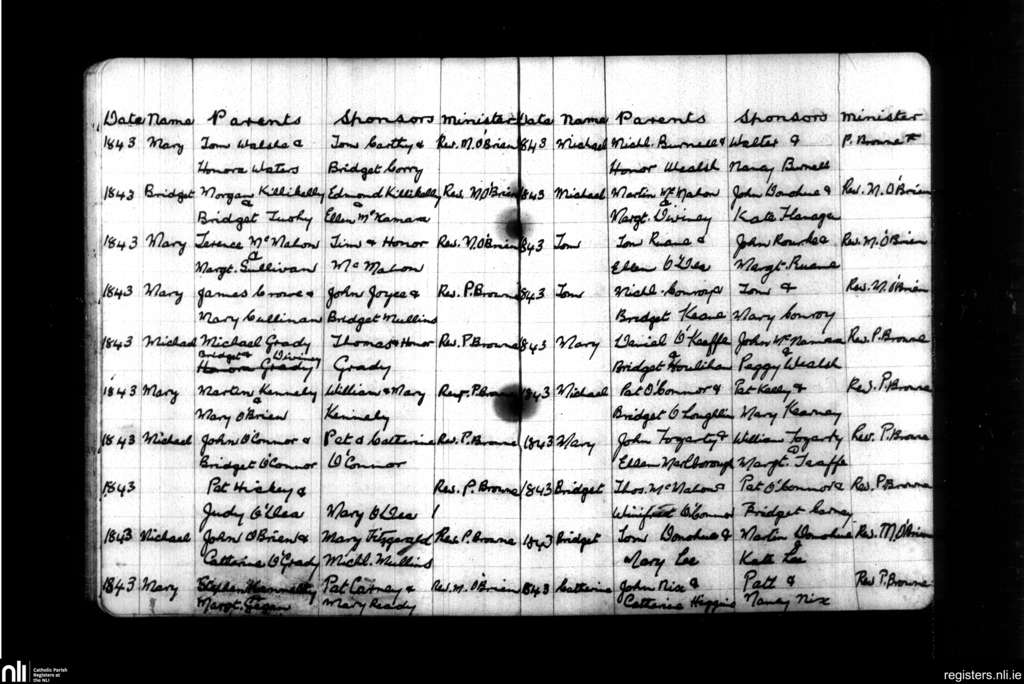 Date Name Parents Sponsors Minister
1843 Mary Tom Walshe & Tom Carthy & Rev. M. O'Brien
Honora Waters Bridget Corry
1843 Bridget Morgan Killikelly Edmond Killikelly Rev. M. O'Brien
& &
Bridget Tuohy Ellen McNamara
1843 Mary Terence McMahon Tim & Honor Rev. M. O'Brien
&
Margt. Sullivan McMahon
1843 Mary James Crowe & John Joyce & Rev. P. Browne
Mary Cullinan Bridget Mullins
1843 Michael Michael Grady Thomas & Honor Rev. P. Browne
Bridget Diviney
Honora Grady Grady
1843 Mary Martin Kennely William & Mary Rev. P. Browne
&
Mary O'Brien Kennely
1843 Michael John O'Connor & Pat & Catherine Rev. P. Browne
Bridget O'Connor O'Connor
1843 Pat Hickey & Rev. P. Browne
Judy O'Dea Mary O'Dea
1843 Michael John O'Brien & Mary Fitzgerald Rev. P. Browne
Catherine O'Grady Michl. Mullins
1843 Mary Stephen Pat Carney & Rev. M. O'Brien
Margt. Mary Ready
Date Name Parents Sponsors Minister
1843 Michael Michl. Burnell & Walter & P. Browne
Honor Wealsh Nancy Burnell
1843 Michael Martin McMahon John Donohue & Rev. M. O'Brien
&
Margt. Diviney Kate Flanagan
1843 Tom Tom Ruane & John Rourke & Rev. M. O'Brien
Ellen O'Dea Margt. Ruane
1843 Tom Michl. Conroy & Tom & Rev. M. O'Brien
Bridget Keane Mary Conroy
1843 Mary Daniel O'Keeffe John McNamara Rev. P. Browne
& &
Bridget Houlihan Peggy Wealsh
1843 Michael Pat O'Connor & Pat Kelly & Rev. P. Browne
Bridget O'Loughlin Mary Kearney
1843 Mary John Fogarty & William Fogarty Rev. P. Browne
&
Ellen Marlborough Margt. Taaffe
1843 Bridget Thos. McMahon & Pat O'Connor & Rev. P. Browne
Winifred O'Connor Bridget Carney
1843 Bridget Tom Donohue & Martin Donohue Rev. M. O'Brien
&
Mary Lee Kate Lee
1843 Catherine John Nix & Patt & Rev P. Browne
Catherine Higgins Nancy Nix
nli Catholic Parish
Registers at
the NLI
registers.nli.ie